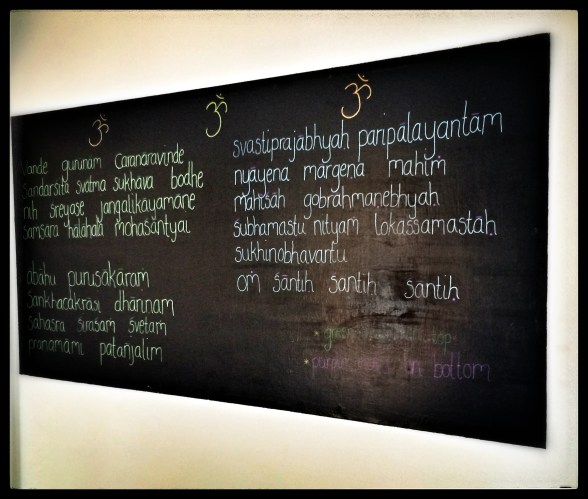 ॐ ॐ ॐ
Vande gurunām Caranāravinde
Sandarsita svatma sukhava bodhe
nih sreyase jangalikāyamane
samsara halahala mohasāntyai
ābāhu purusākaram
sankhacakrāsi dhārinam
sahasra sirasam svetam
pranamāmi patañjalim
svastiprajābhyah paripālayantām
nyāyena mārgena mahiṁ
mahisāh gobrahmanebhyah
subhamastu nityam lokāssamastāh
sukhinobhavantu
oṁ sāntih santih santih
top
bottom